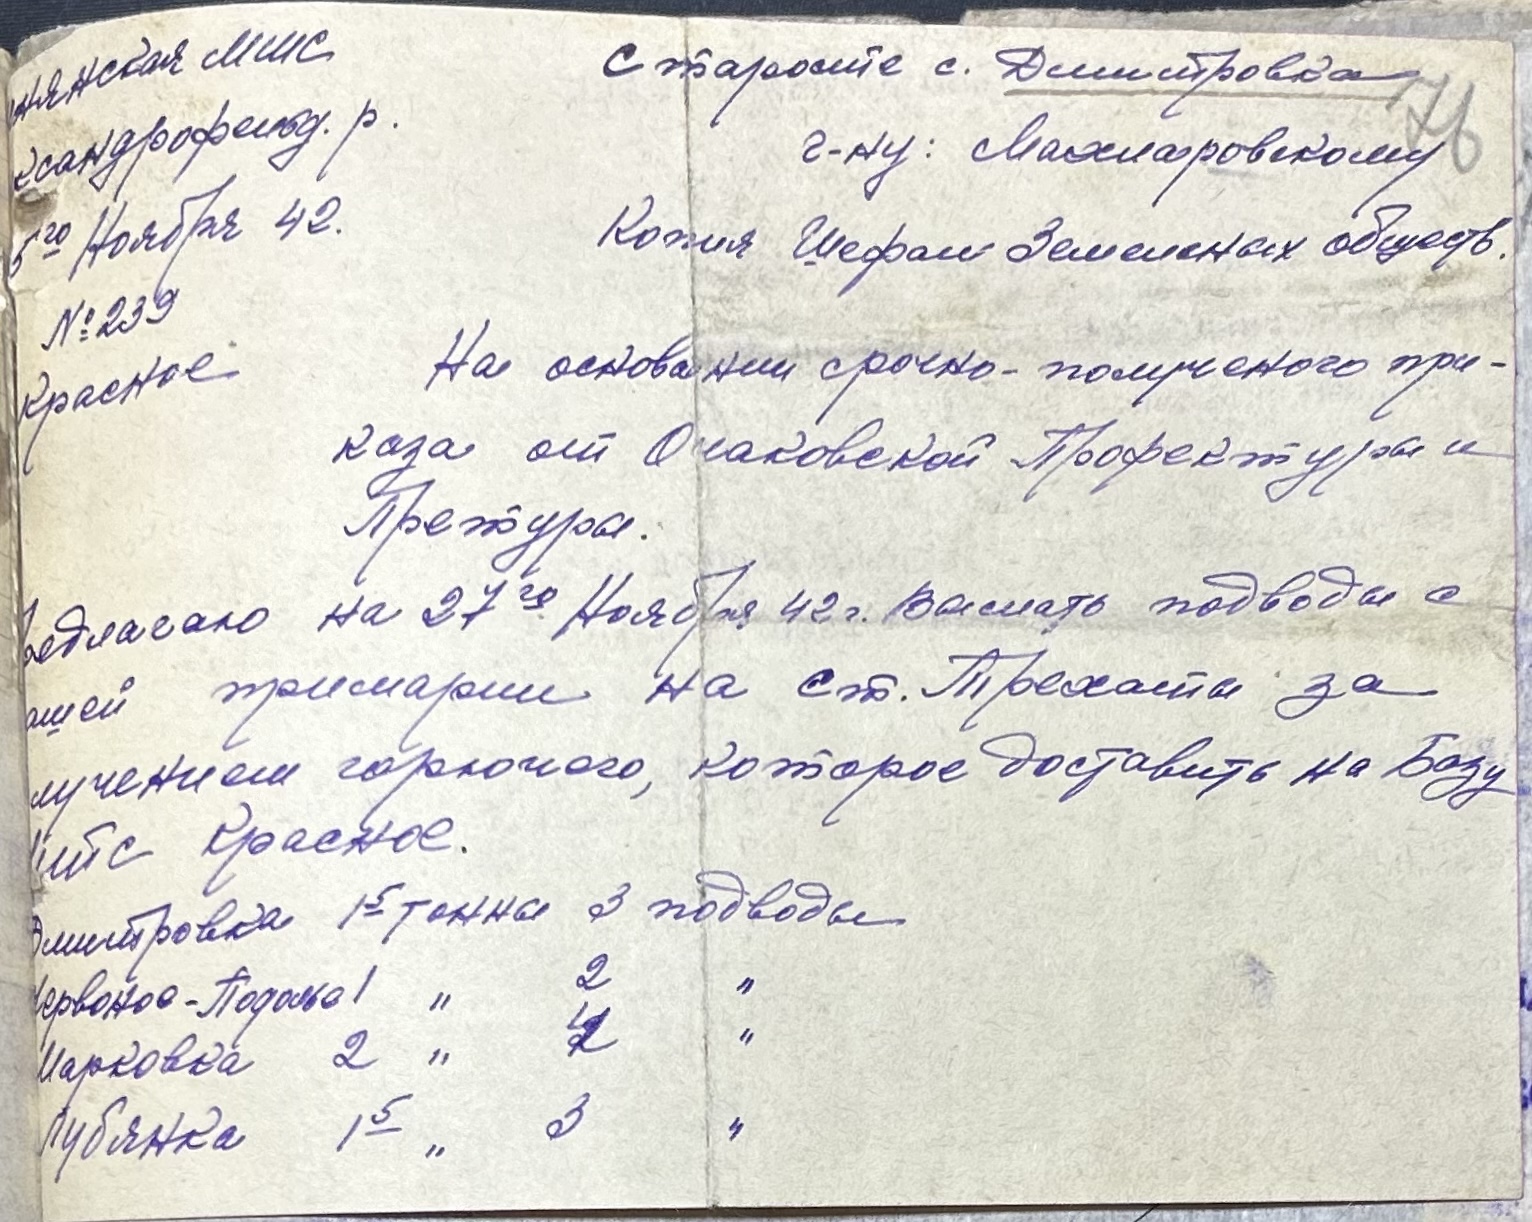 нянская МТС
ксандрофельд. р.
5го Ноября 42.
№ 239
Красное
Старосте с. Дмитровка
76
г-ну: Махнаровскому
Копия Шефам Земельных обществ.
На основании срочно-полученого при-
каза от Очаковской Профектуры и
Претуры.
редлагаю на 27го Ноября 42 г. Выслать подводы с
ашей примарии на ст. Трехаты за
лучением горючего, которое доставить на Базу
МТС Красное.
Дмитровка 1 5 тонны 3 подводы
Червоное-Подолье 1 " 2 "
Марковка 2 " 4 "
Лубянка 1 5 " 3 "